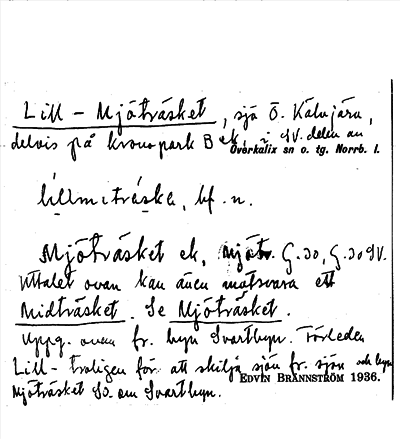 Lill - Mjöträsket, sjö Ö. Kälvjärv,
delvis på kronopark B ek, i SV. delen av
Överkalix sn o. tg. Norrb. l.
lillmitraska, bf. n.
Mjöträsket ek, G. 30, G. 30 SV.
Uttalet ovan kan även motsvara ett
Midträsket. Se Mjöträsket.
Uppg. ovan fr. byn Svartbyn. Förleden
Lill- troligen för att skilja sjön fr. sjön och byn
Mjöträsket SO. om Svartbyn.
EDVIN BRÄNNSTRÖM 1936.